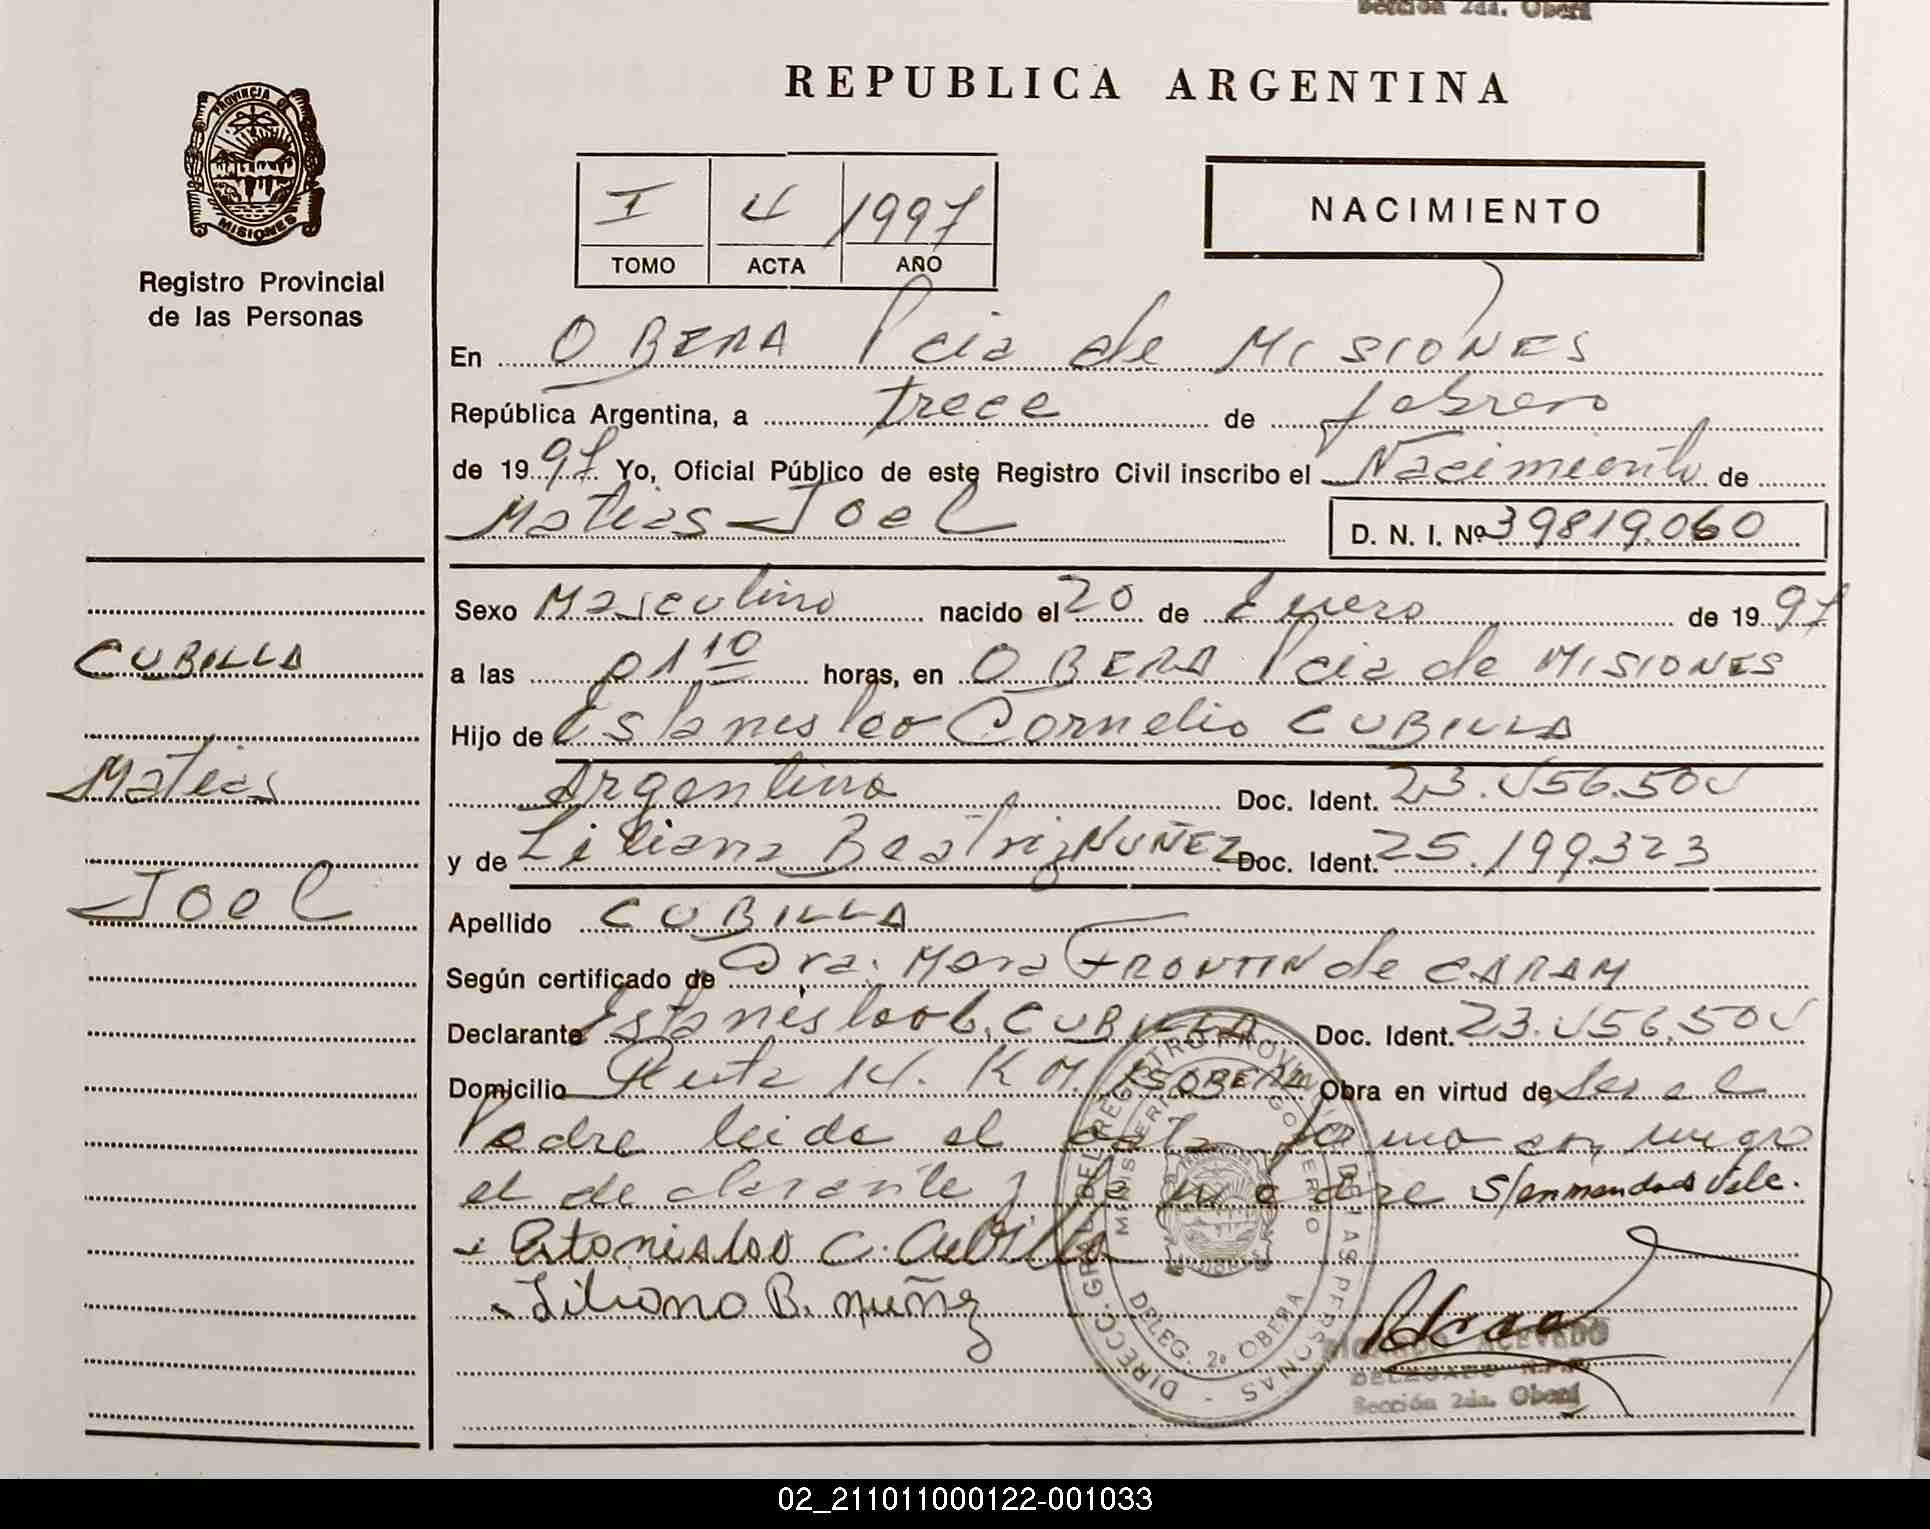 Sección 2da. Oberá
REPUBLICA ARGENTINA
PROVINCIA DE
MISIONES
Registro Provincial
de las Personas
I 4 1997
TOMO ACTA AÑO
NACIMIENTO
En OBERA Pcia de MISIONES
República Argentina, a trece de febrero
de 1997 Yo, Oficial Público de este Registro Civil inscribo el Nacimiento de
Matias Joel D. N. I. Nº 39819.060
Sexo Masculino nacido el 20 de Enero de 1997
a las 01 10 horas, en OBERA Pcia de MISIONES
Hijo de Estanislao Cornelio CUBILLA
Argentino Doc. Ident. 23.456.504
y de Liliana Beatriz NUÑEZ Doc. Ident. 25.199.323
Apellido CUBILLA
Según certificado de Dra. Mora FRONTIN de CARAM
Declarante Estanislao C. CUBILLA Doc. Ident. 23.456.504
Domicilio Ruta 14. KM. OBERA Obra en virtud de ser el
Padre leida el acta firma conmigo
el declarante y la madre S/enmendado Vale.
Estanislao C. Cubilla
Liliana B. Nuñez
CUBILLA
Matias
Joel
DIRECC. GRAL. DEL REGISTRO PROVINCIAL DE LAS PERSONAS
MINISTERIO GOBIERNO
DELEG. 2ª OBERA
ACEVEDO
DELEGADO
Sección 2da. Oberá
02_211011000122-001033